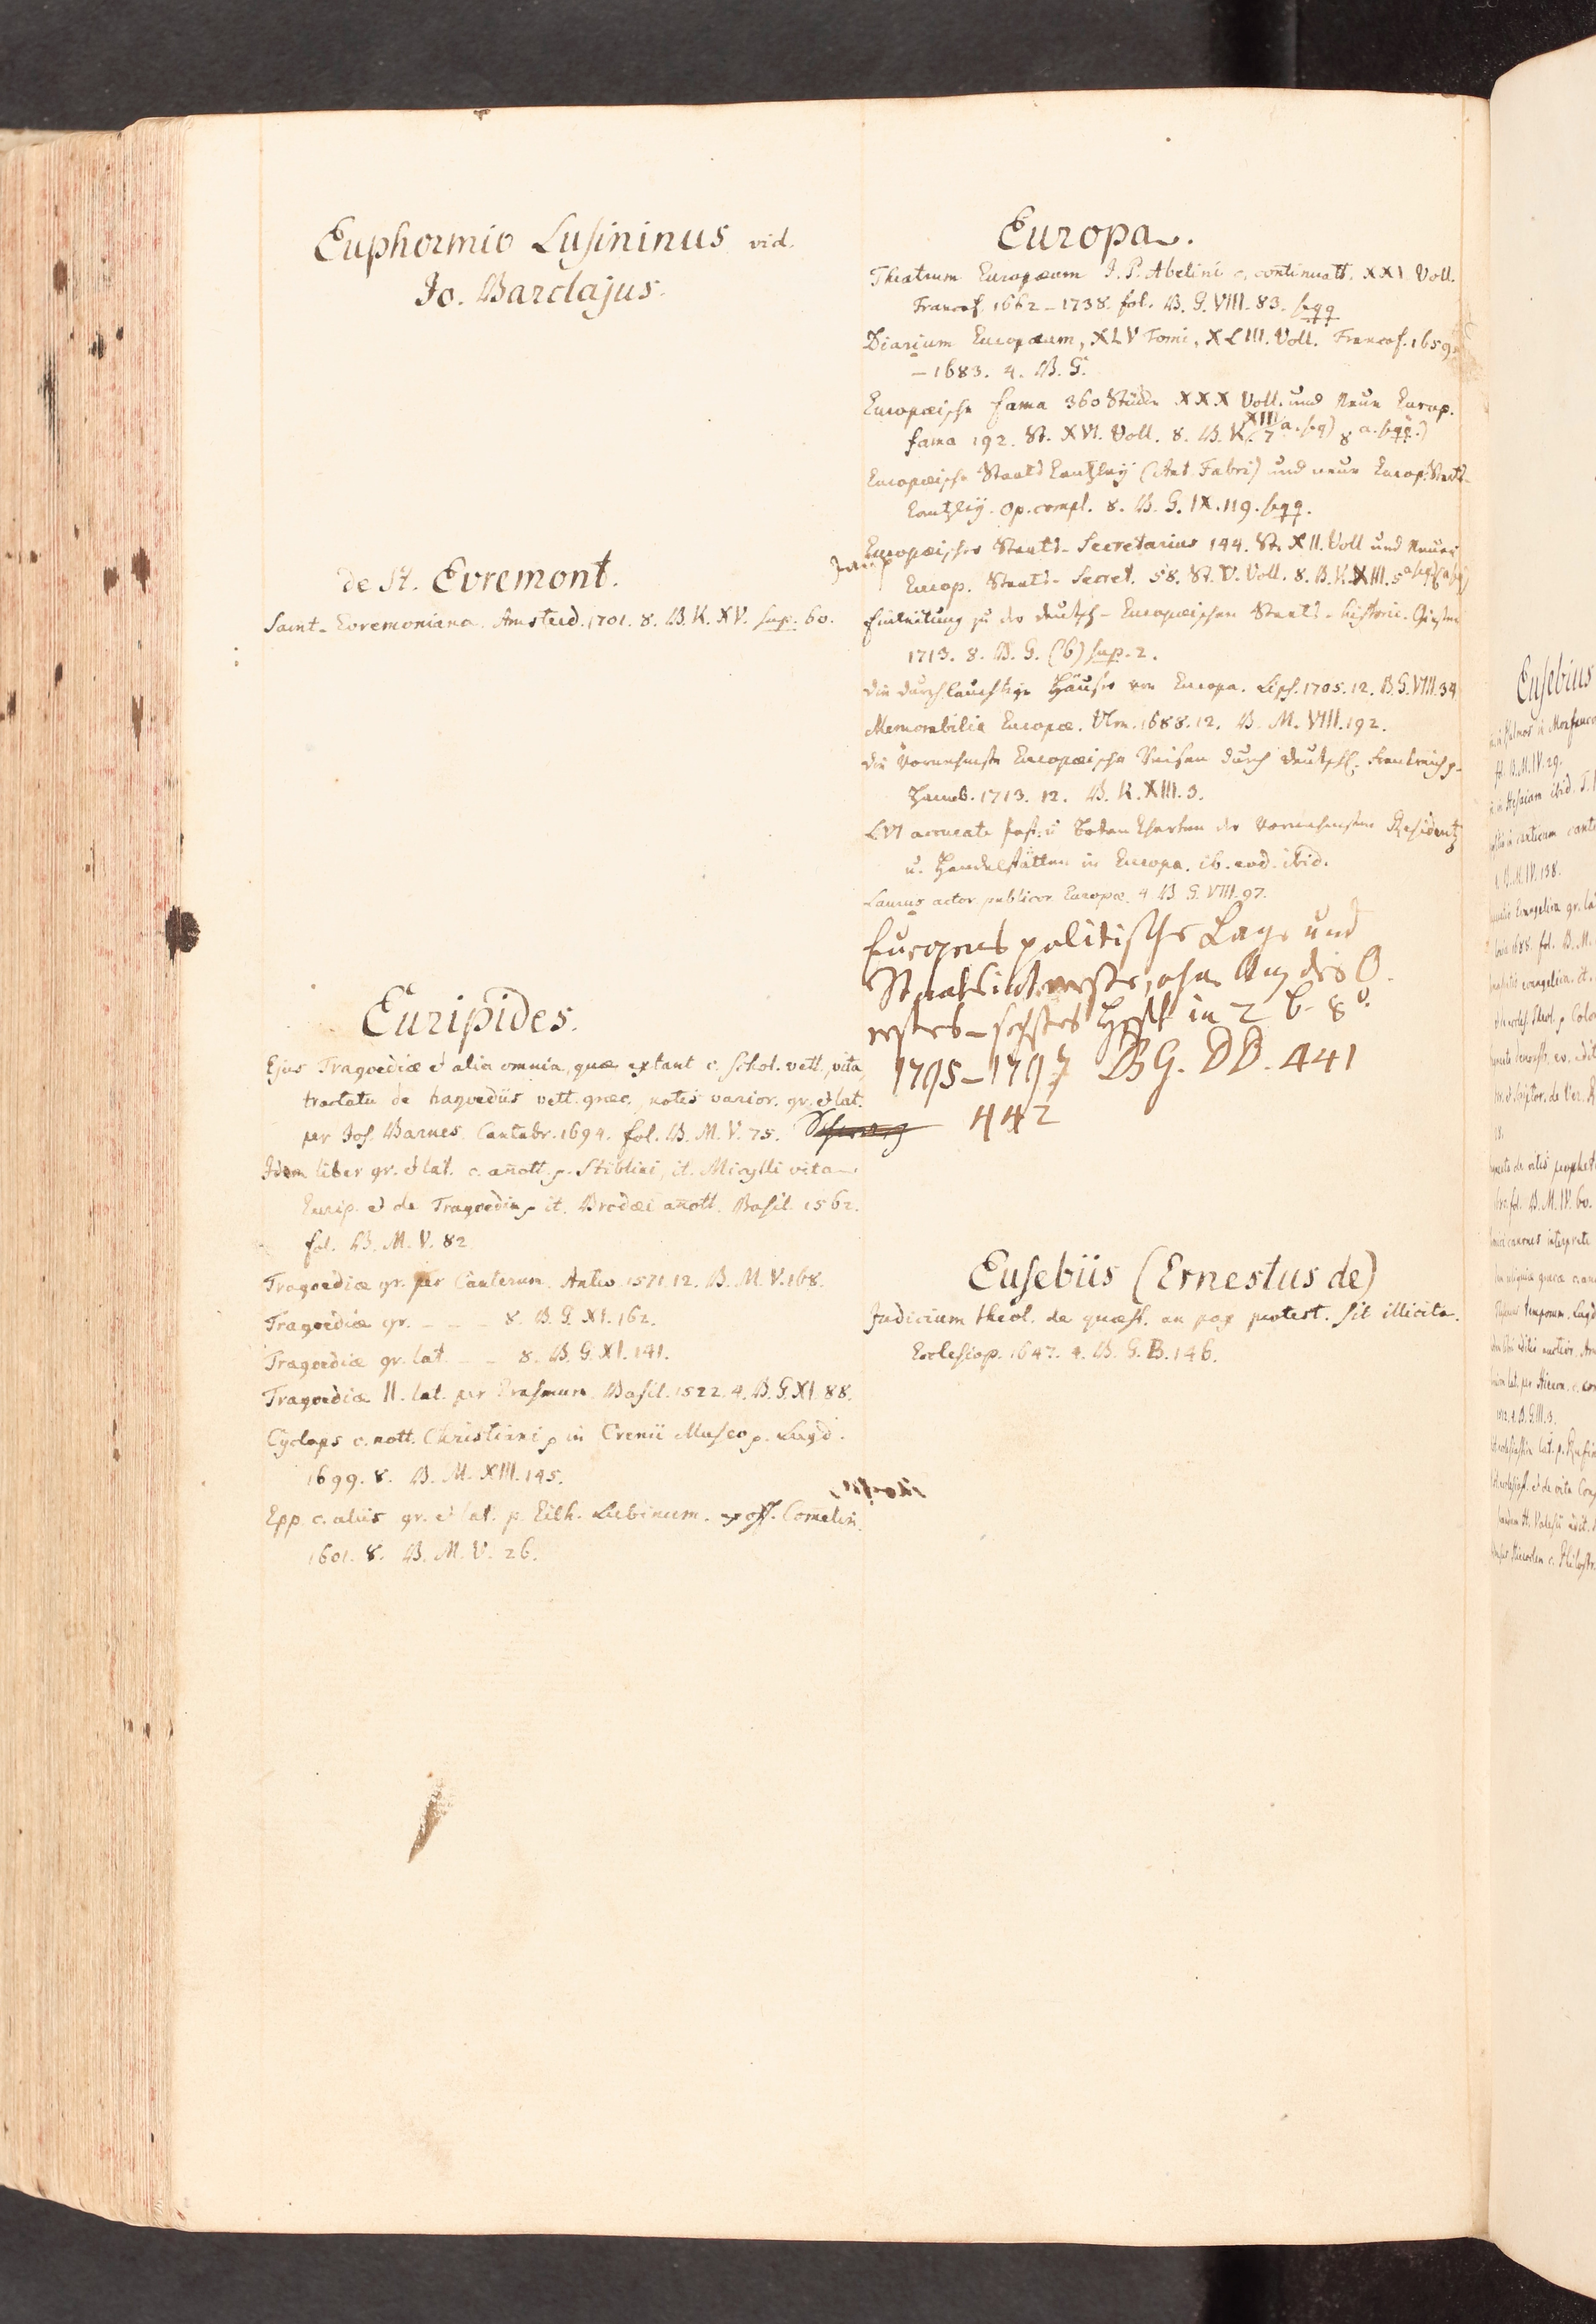 Euphormio Lusininus vid.
Jo. Barclajus.
de St. Evremont.
Saint-Evremoniana. Amsteld. 1701. 8. B. K. XV. sup. 60.
Euripides.
Ejus Tragoediæ et alia omnia, quæ extant c. schol. vett., vita,
tractatu de tragoediis vett. græc. notis varior. gr. et lat.
per Jos. Barnes. Cantabr. 1694. fol. B. M. V. 75.
Idem liber gr. et lat. c. añott. p. Stiblini, it. Micylli vita
Eurip. et de Tragoedia, it. Brodæi añott. Basil. 1562.
fol. B. M. V. 82
Tragoediæ gr. per Canterum. Antw. 1571. 12. B. M. V. 168.
Tragoediæ gr. _ _ _ 8. B. G. XI. 162.
Tragoediæ gr. lat. _ _ 8. B. G. XI. 141.
Tragoediæ II. lat. per Erasmum. Basil. 1522. 4. B. G. XI. 88.
Cyclops c. nott. Christiani, in Crenii Museo p. Lugd.
1699. 8. B. M. XIII. 145.
Epp. c. aliis gr. et lat. p. Eilh. Lubinum. ex off. Com̃elin.
1601. 8. B. M. V. 26.
Europa.
Theatrum Europæum J. P. Abelini c. continuatt. XXI Voll.
Francof. 1662-1738. fol. B. G. VIII. 83. sqq
Diarium Europæum, XLV Tomi, XLIII. Voll. Francof. 1659
-1683. 4. B. G.
Europæische Fama 360 Stücke XXX Voll. und Neue Europ.
Fama 192. St. XVI. Voll. 8. B. K. XIII 7 a. sq) 8 a. sqq.)
Europæische Staats Cantzley (Ant. Fabri) und neue Europ. Staats-
Cantzley. Op. compl. 8. B. G. IX. 119. sqq.
Europæischer Staats-Secretarius 144. St. XII. Voll und Neuer
Europ. Staats-Secret. 58. St. V. Voll. 8. B. K. XIII. 5
Einleitung zu der deutsch-Europæischen Staats-Historie.
1713. 8. B. G. (b) sup. 2.
Die durchlauchtige Häuser von Europa. Lips. 1705. 12. B. G. VIII. 34
Memorabilia Europæ. Ulm. 1688. 12. B. M. VIII. 192.
Die Vornehmste Europæische Reisen durch Deutschl., Frankreich
Hamb. 1713. 12. B. K. XIII. 3.
LVI accurate Post- u Boten Charten der Vornehmsten Residentz
u. Handelstätten in Europa. ib. eod. ibid.
Laurus actor. publicor. Europæ. 4. B. G. VIII. 97.
Europens politische Lage und
Staatsinteresse, ohne Anz des O.
erstes-sechstes Heft in 2 b. 8º.
1795-1797 BG. DD. 441
442
Eusebiis (Ernestus de)
Judicium theol. de quæst. an pax protest. sit illicita.
Ecclesiop. 1647. 4. B. G. B. 146.
Eusebius